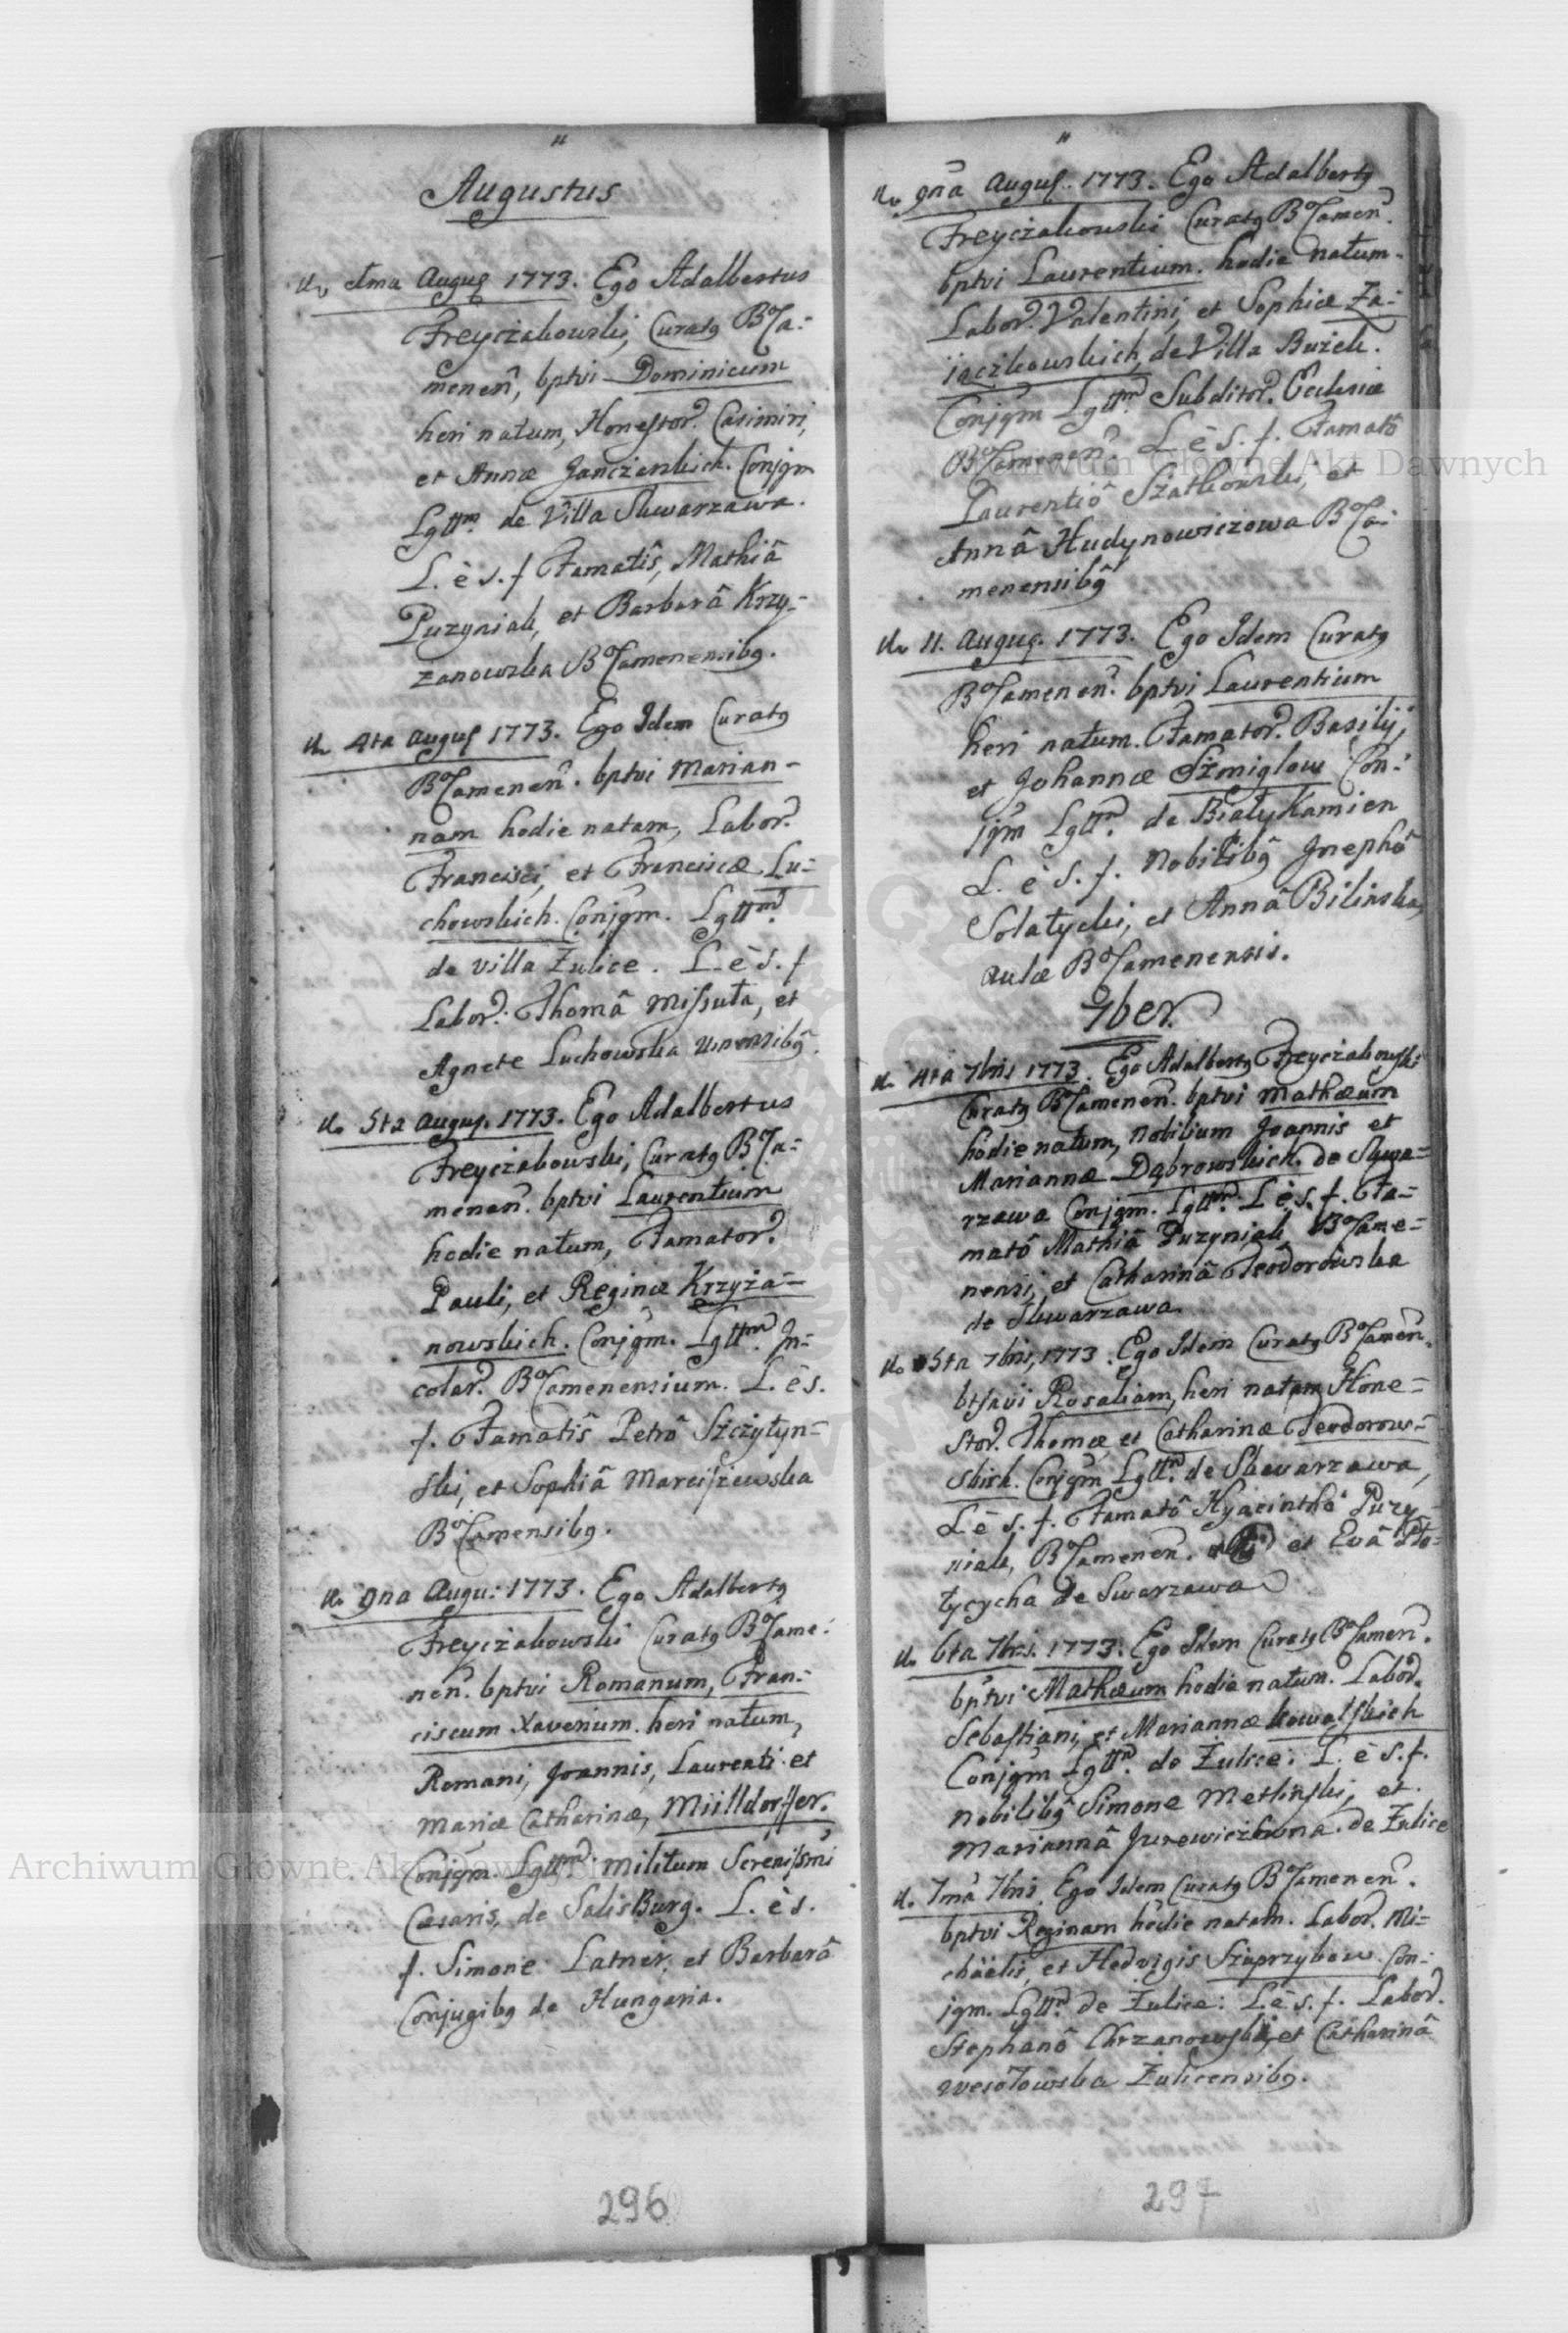 Augustus
d. 1ma Augus 1773. Ego Adalbertus
Freyczakowski, Curatg BCa=
menen, bptvi Dominicum
heri natum, Honestor. Casimiri,
et Annæ Janczenkich. Conjgm
Lgttm de Villa Skwarzawa.
L. è s. f Famatis, Mathiâ
Puzyniak, et Barbarâ Krzy=
zanowska BCamenensibg.
d. 4ta Augus 1773. Ego Idem Curatg
BCamenen. bptvi Marian=
nam hodie natam, Labor.
Francisci, et Franciscæ Lu=
chowskich. Conjgm. Lgttm
de Villa Żulice. L. è s. f
Labor. Thomâ Missuta, et
Agnete Luchowska
d. 5ta Augus. 1773. Ego Adalbertus
Freyczakowski, Curatg BCa=
menen. bptvi Laurentium
hodie natum, Famator.
Pauli, et Reginæ Krzyża=
nowskich. Conjgm. Lgttm. In=
colar. BCamenensium. L. è s.
f. Famatis Petrô Szczytyn=
ski, et Sophiâ Marciszewska
BCamensibg.
d. 9na Augu: 1773. Ego Adalbertg
Freyczakowski Curatg BCame=
nen. bptvi Romanum, Fran=
ciscum Xaverium. heri natum,
Romani, Joannis, Laurenti et
Mariæ Catharinæ, Miilldorffer.
Conjgm Lgttm. militum Serenissmi
Cæsaris, de SalisBurg. L. è s.
f. Simone Latner, et Barbarâ
Conjugibg de Hungaria.
296
d. 9na Augus. 1773. Ego Adalbertg
Freyczakowski Curatg BCamen.
bptvi Laurentium. hodie natum.
Labor. Valentini, et Sophiæ Za=
jączkowskich, de Villa Bużek.
Conjgm Lgttm. Subditor. Ecclesiæ
BCamenen. L è s. f. Famatô
Laurentiô Szatkowski, et
Annâ Hudynowiczowa BCa=
menensibg
d. 11. Augus. 1773. Ego Idem Curatg
BCamenen. bptvi Laurentium
heri natum. Famator. Basilij,
et Johannæ Szmiglow Con=
jgm Lgttm. de Biały Kamien
L. è s. f. Nobilibg Josephô
Solatycki, et Annâ Bilinska,
aulæ BCamenensis.
7ber.
d. 4ta 7bris 1773. Ego Adalbertg Freyczakowski
Curatg BCamenen. bptvi Mathæum
hodie natum, Nobilium Joannis et
Mariannæ Dąbrowskich. de Skwa=
rzawa Conjgm. Lgttm. L è s. f. Fa=
matô Mathiâ Puzyniak, BCame=
nensi, et Catharinâ Teodorowska
de Skwarzawa
d. 5ta 7bris, 1773. Ego Idem Curatg BCamen.
btsavi Rosaliam, heri natam Hone=
stor. Thomæ, et Catharinæ Teodorow=
skich. Conjgm Lgttm. de Skwarzawa,
L è s. f. Famatô Hyacinthô Puzy=
niak, BCamenen. et Evâ
de Swarzawa
d. 6ta 7bris. 1773. Ego Idem Curatg BCamen.
bptvi Mathæum hodie natum. Labor.
Sebastiani, et Mariannæ Kowalskich
Conjgm Lgttm. de Żulice. L. è s. f.
Nobilibg Simone Metlinski, et
Mariannâ Jurewiczowna de Żulice
d. 7ma 7bris Ego Idem Curatg BCamenen.
bptvi Reginam hodie natam. Labor. Mi=
chäelis, et Hedvigis Szaprzybow. Con=
jgm. Lgttm. de Żulice: L è s. f. Labor.
Stephanô Chrzanowski, et Catharinâ
Wesołowska Żulicensibg.
297
Archiwum Główne Akt Dawnych
Archiwum Główne Akt Dawnych